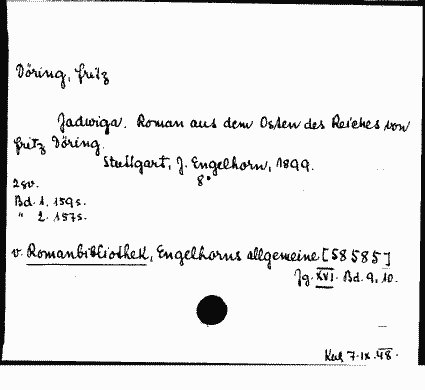 Döring, Fritz
Jadwiga. Roman aus dem Osten des Reiches von
Fritz Döring.
Stuttgart, J. Engelhorn, 1899.
8°
2 Bv.
Bd. 1. 159 s.
" 2. 157 s.
v. Romanbibliothek, Engelhorns allgemeine [58585]
Jg. XVI. Bd. 9, 10.
7.IX.48.